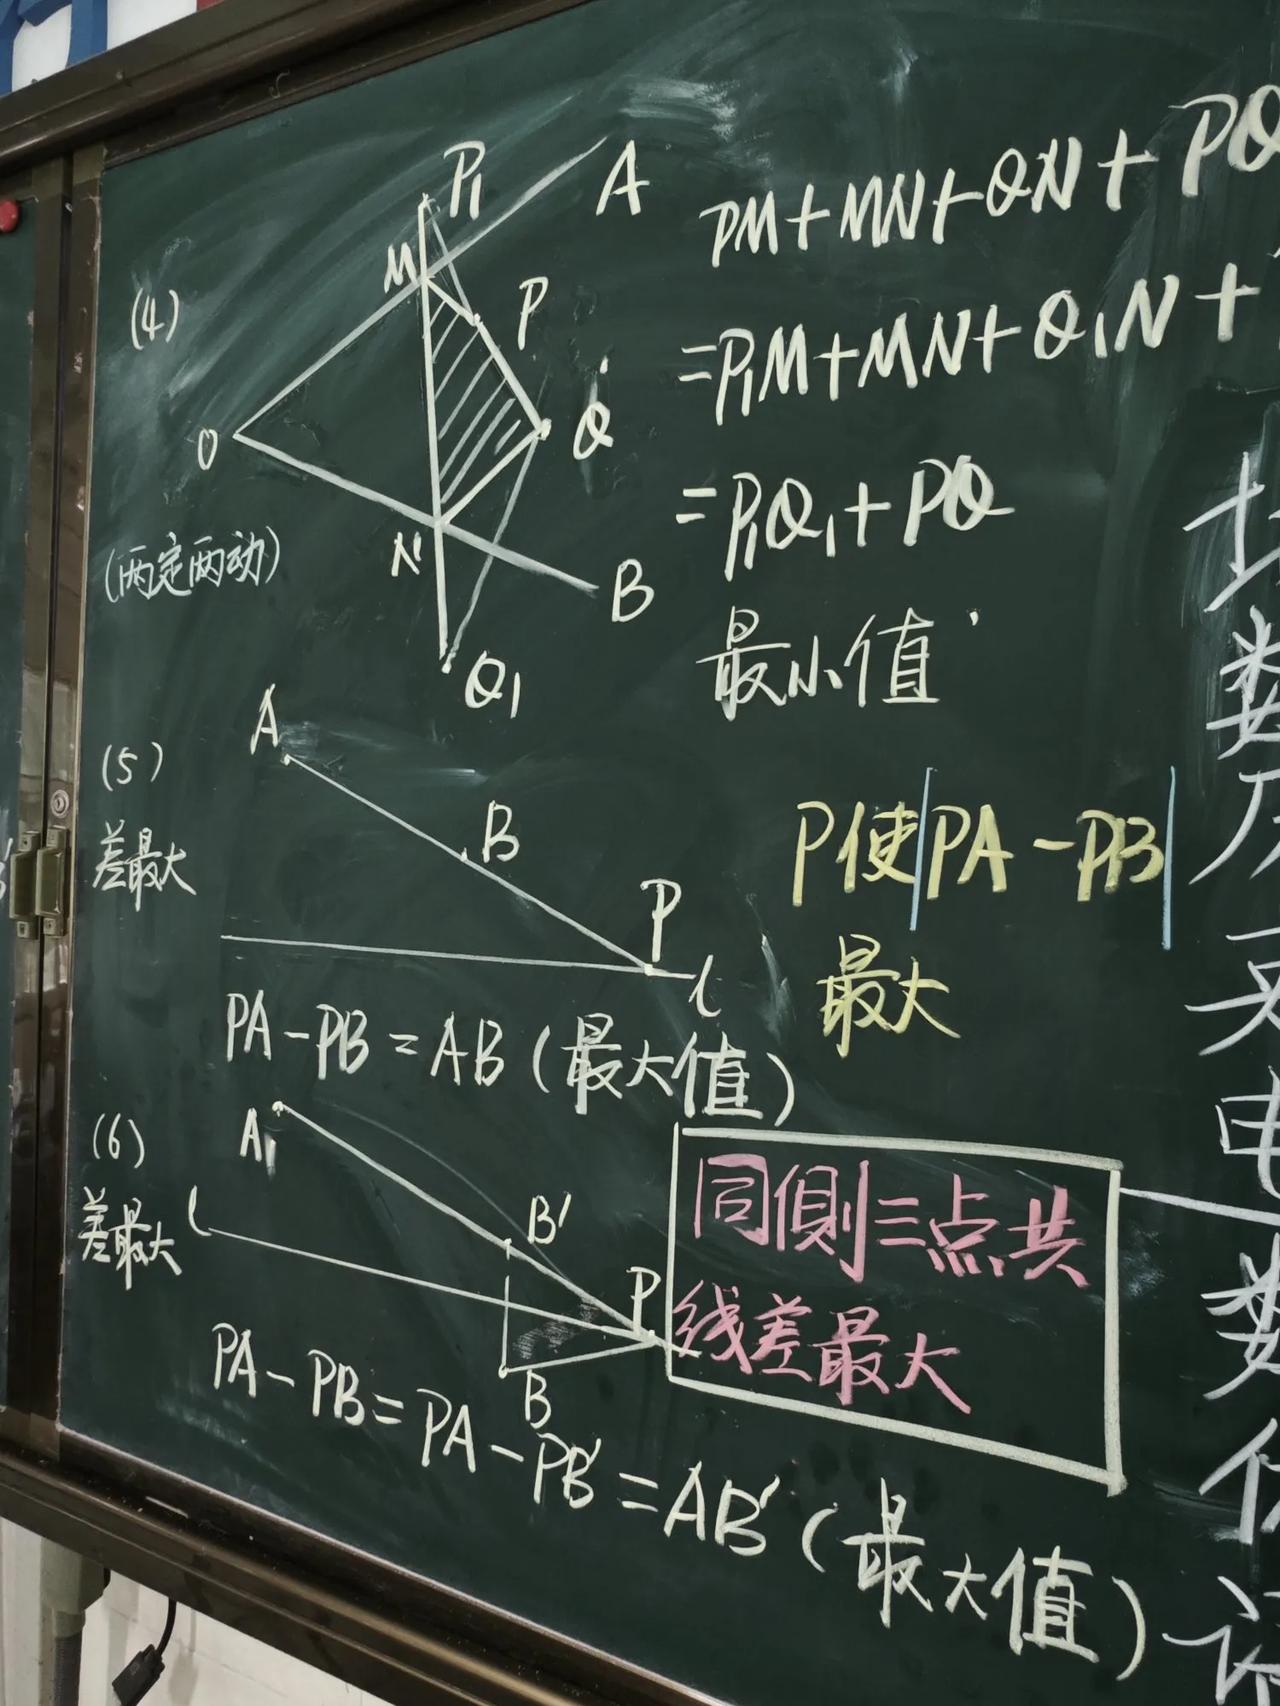 (4)
P₁
A
M
P
O
Q
N
B
Q₁
(两定两动)
PM+MN+QN+PQ
=P₁M+MN+Q₁N+
=P₁Q₁+PQ
最小值
(5)
差最大
A
B
P
l
P使|PA-PB|
最大
PA-PB=AB(最大值)
(6)
差最大
A₁
l
B'
P
B
同侧三点共
线差最大
PA-PB=PA-PB'=AB'(最大值)
数
电
数